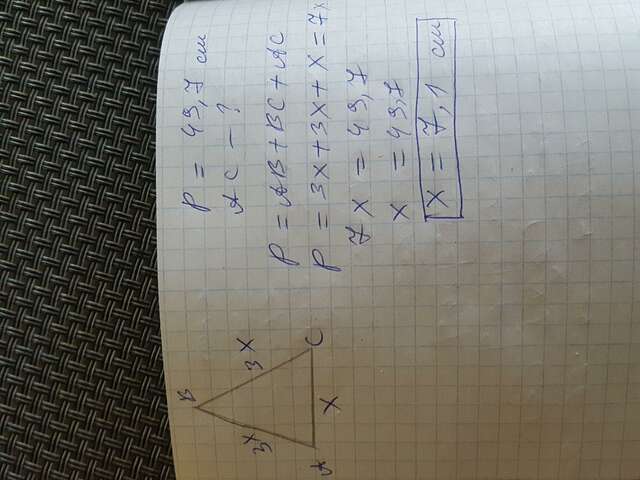 P = 49,7 см
AC - ?
P = AB + BC + AC
P = 3x + 3x + x = 7x
7x = 49,7
x = 49,7
x = 7,1 см
B
3x
3x
A
x
C